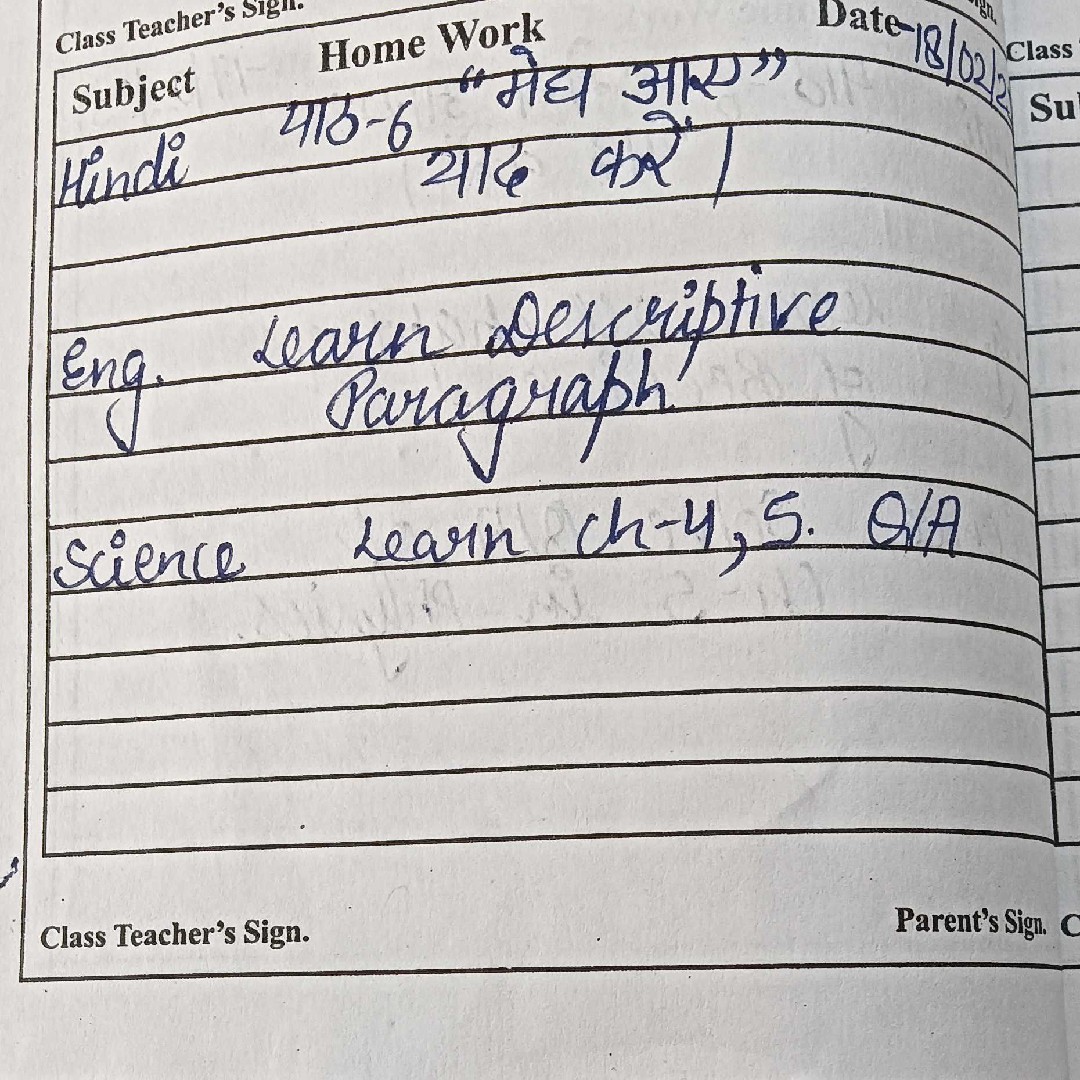 Class Teacher's Sign.
Home Work
Date-18/02/2
Class
Subject
Su
Hindi पाठ-6 “मेघ आए”
याद करें।
Eng. Learn Descriptive
Paragraph
Science Learn Ch-4, 5. Q/A
Class Teacher's Sign.
Parent's Sign.
C